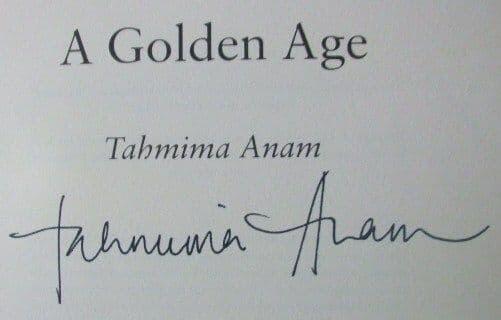 A Golden Age
Tahmima Anam
Tahmima Anam